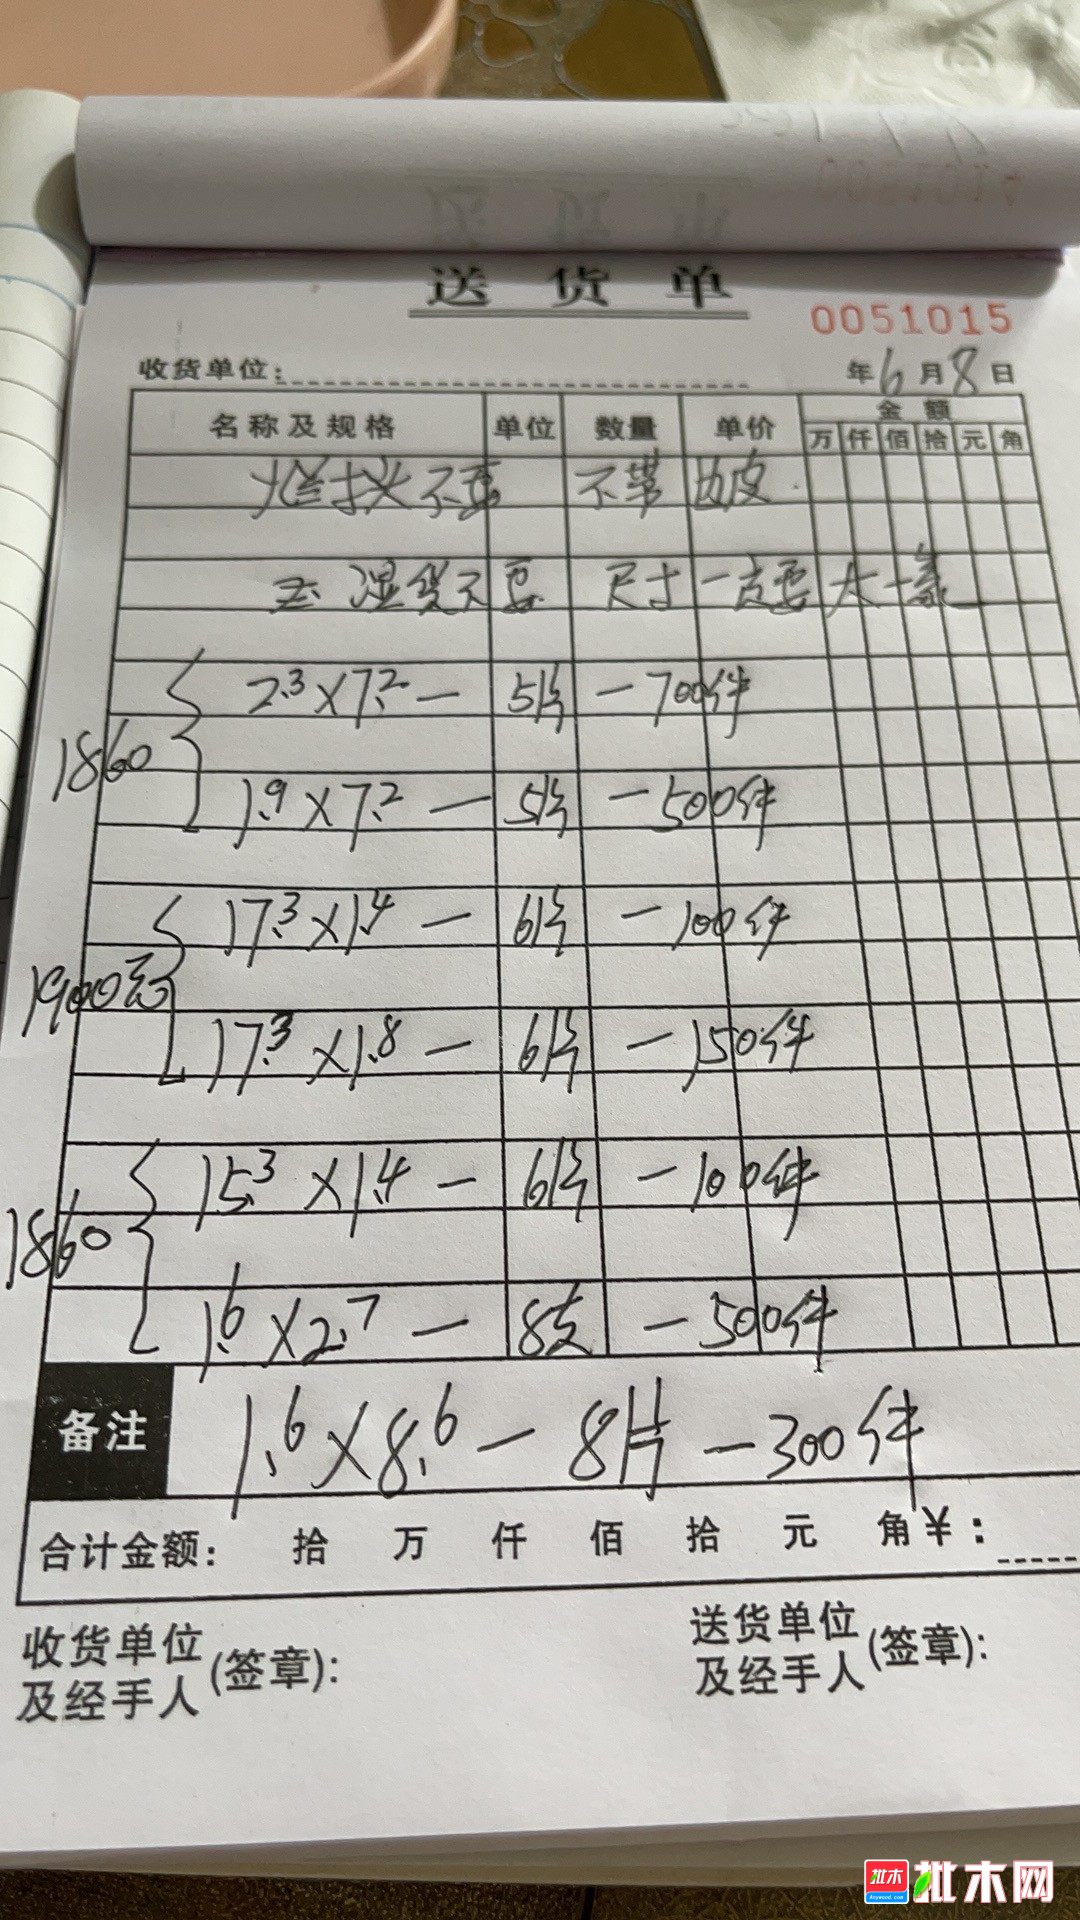 送 货 单
0051015
收货单位: 年6月8日
名称及规格 单位 数量 单价 金 额
万 仟 佰 拾 元 角
不要 不带 皮
湿货不要 尺寸一定要大一
2.3×7.2— 5片 —700件
1860
1.9×7.2— 5片 —500件
17.3×1.4— 6片 —100件
1900元
17.3×1.8— 6片 —150件
15.3×1.4— 6片 —100件
1860
1.6×2.7— 8支 —500件
备注 1.6×8.6— 8片 —300件
合计金额: 拾 万 仟 佰 拾 元 角¥:
收货单位及经手人(签章): 送货单位及经手人(签章):
批木 Anywood.com 批木网